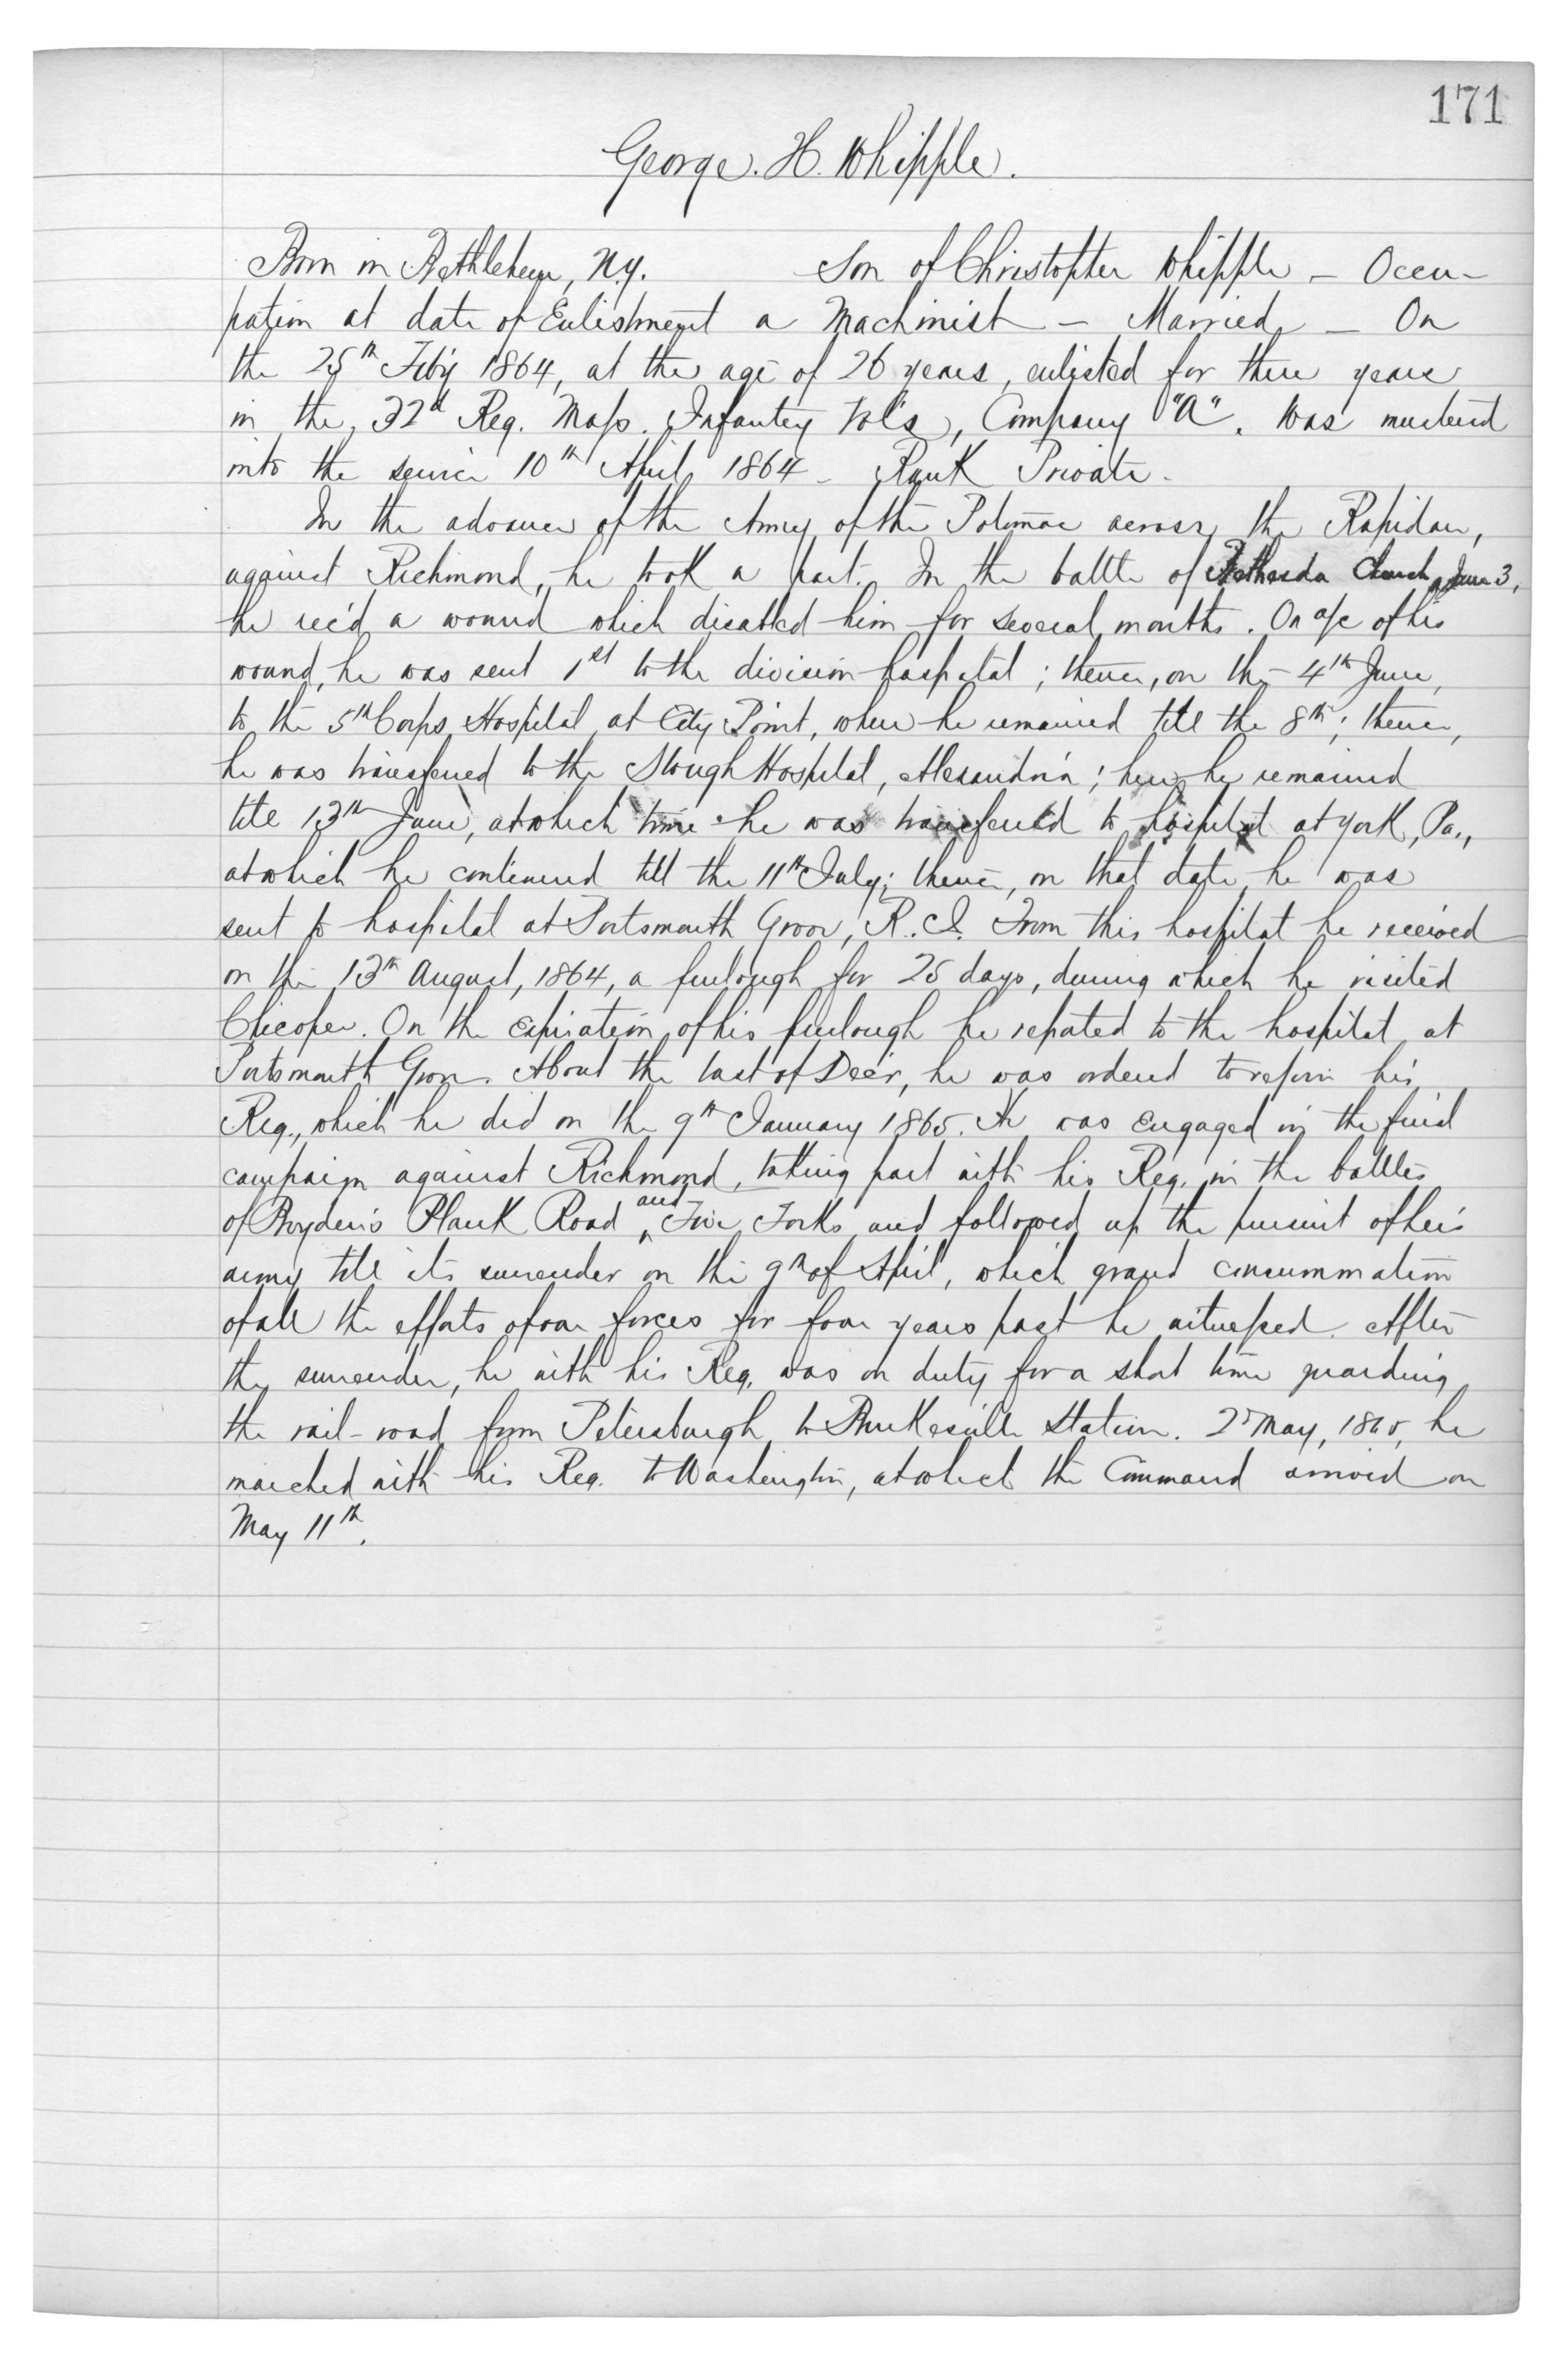 171
George. H. Whipple.
Born in Bethlehem, N.Y. Son of Christopher Whipple – Occu-
pation at date of Enlistment a Machinist – Married – On
the 25th Feb'y 1864, at the age of 26 years, enlisted for three years
in the 32d Reg. Mass. Infantry Vol's, Company "A". Was mustered
into the service 10th April 1864 – Rank Private.
In the advance of the Army of the Potomac across the Rapidan,
against Richmond, he took a part. In the battle of Bethesda Church, June 3,
he rec'd a wound which disabled him for several months. On a/c of his
wound, he was sent 1st to the division hospital; thence, on the 4th June,
to the 5th Corps Hospital at City Point, where he remained till the 8th; thence,
he was transferred to the Slough Hospital, Alexandria; here he remained
till 13th June, at which time he was transferred to hospital at York, Pa.,
at which he continued till the 11th July; thence, on that date he was
sent to hospital at Portsmouth Grove, R.I. From this hospital he received
on the 13th August, 1864, a furlough for 25 days, during which he visited
Chicopee. On the expiration of his furlough he reported to the hospital at
Portsmouth Grove. About the last of Dec'r, he was ordered to rejoin his
Reg., which he did on the 9th January 1865. He was engaged in the final
campaign against Richmond, taking part with his Reg. in the battles
of Boyden's Plank Road and Five Forks and followed up the pursuit of Lee's
army till its surrender on the 9th of April, which grand consummation
of all the efforts of our forces for four years past he witnessed. After
the surrender, he with his Reg. was on duty for a short time guarding
the rail-road from Petersburgh to Burkesville Station. 2d May, 1865, he
marched with his Reg. to Washington, at which the Command arrived on
May 11th.